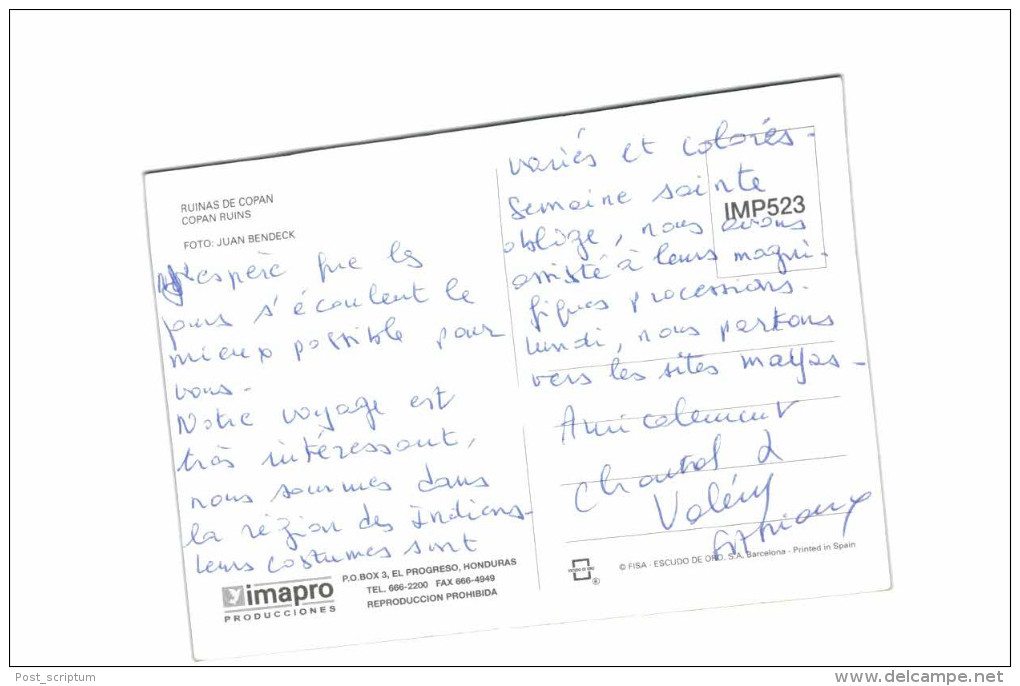 RUINAS DE COPAN
COPAN RUINS
FOTO: JUAN BENDECK
J'espère que les
jours s'écoulent le
mieux possible pour
vous.
Notre voyage est
très intéressant,
nous sommes dans
la région des Indiens-
leurs costumes sont
variés et colorés.
Semaine sainte
oblige, nous avons
assisté à leurs magni-
fiques processions.
Lundi, nous partons
vers les sites mayas.
Amicalement
Chantal &
Valéry
IMP523
imapro
PRODUCCIONES
P.O.BOX 3, EL PROGRESO, HONDURAS
TEL. 666-2200 FAX 666-4949
REPRODUCCION PROHIBIDA
© FISA - ESCUDO DE ORO, S.A. Barcelona - Printed in Spain
®
Post_scriptum
delcampe.net